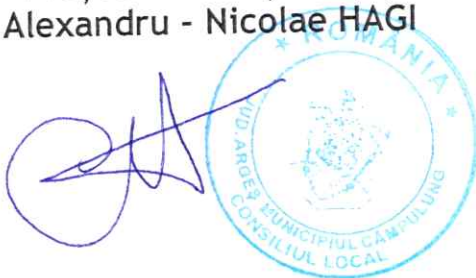 Alexandru - Nicolae HAGI
* ROMÂNIA *
JUD. ARGEȘ MUNICIPIUL CÂMPULUNG
CONSILIUL LOCAL